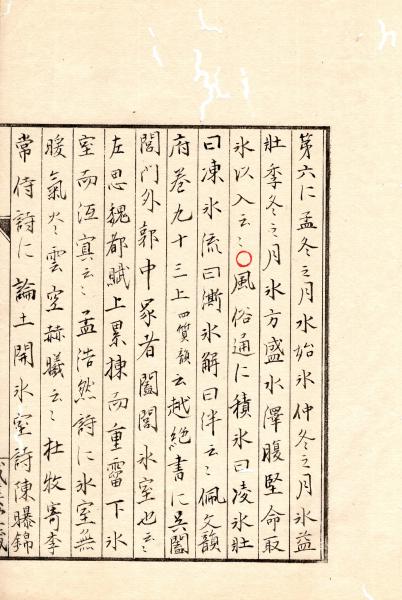 第六に孟冬之月水始氷仲冬之月氷益
壯季冬之月氷方盛水澤腹堅命取
氷以入云〻○風俗通に積氷曰凌氷壯
曰凍氷流曰澌氷解曰伴云〻佩文韻
府巻九十三上四質韻云越絶書に呉闔
閭門外郭中冢者闔閭氷室也云〻
左思魏都賦上累棟而重霤下氷
室而冱寘云〻孟浩然詩に氷室無
暖氣炎雲空赫曦云〻杜牧寄李
常侍詩に論土開氷室詩陳曝錦